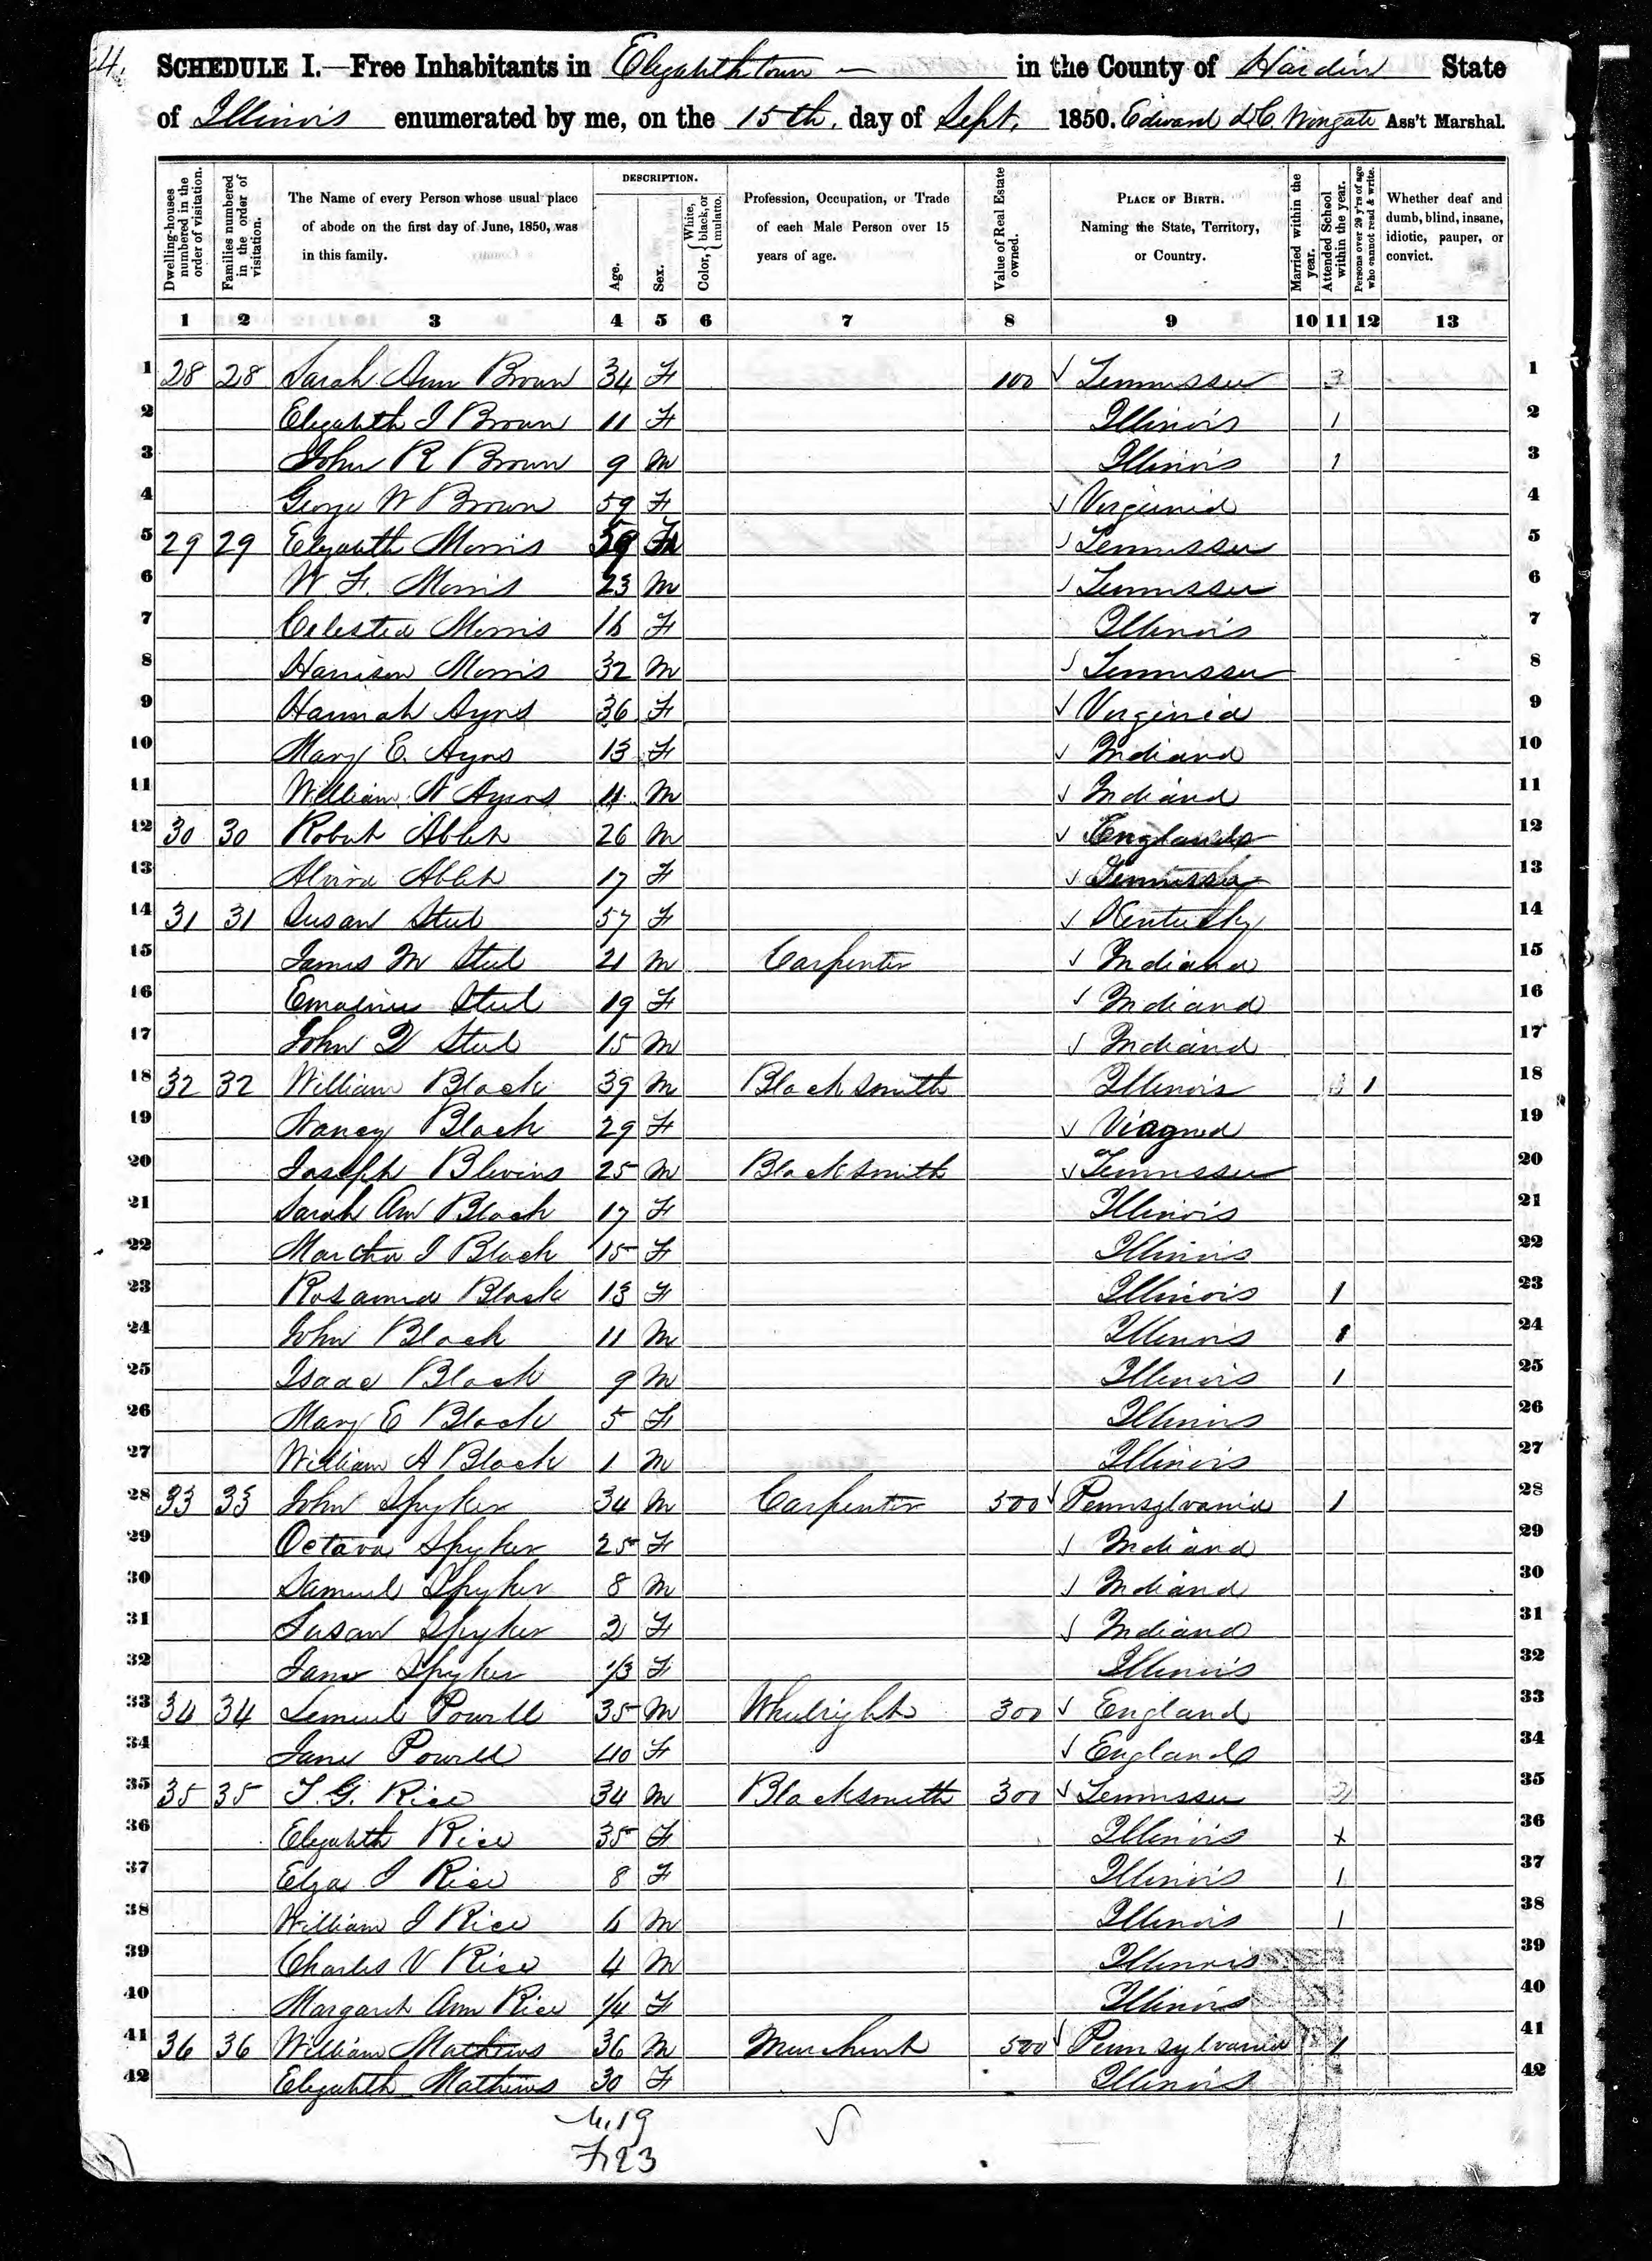 4.
SCHEDULE I.—Free Inhabitants in Elizabethtown — in the County of Hardin State
of Illinois enumerated by me, on the 15th. day of Sept. 1850. Edward D.C. Wingate Ass't Marshal.
Dwelling-houses numbered in the order of visitation.
Families numbered in the order of visitation.
The Name of every Person whose usual place of abode on the first day of June, 1850, was in this family.
DESCRIPTION.
Age.
Sex.
Color, { White, black, or mulatto.
Profession, Occupation, or Trade of each Male Person over 15 years of age.
Value of Real Estate owned.
PLACE OF BIRTH. Naming the State, Territory, or Country.
Married within the year.
Attended School within the year.
Persons over 20 y'rs of age who cannot read & write.
Whether deaf and dumb, blind, insane, idiotic, pauper, or convict.
1 2 3 4 5 6 7 8 9 10 11 12 13
1 28 28 Sarah Ann Brown 34 F 100 ✓ Tennessee 3 1
2 Elizabeth J Brown 11 F Illinois 1 2
3 John R Brown 9 M Illinois 1 3
4 George W Brown 59 F ✓ Virginia 4
5 29 29 Elizabeth Morris 59 F ✓ Tennessee 5
6 W. F. Morris 23 M ✓ Tennessee 6
7 Celestia Morris 16 F Illinois 7
8 Harrison Morris 32 M ✓ Tennessee 8
9 Hannah Ayrs 36 F ✓ Virginia 9
10 Mary E. Ayrs 13 F ✓ Indiana 10
11 William N Ayers 11 M ✓ Indiana 11
12 30 30 Robert Ablet 26 M ✓ England 12
13 Alvira Ablet 17 F ✓ Tennessee 13
14 31 31 Susan Steel 57 F ✓ Kentucky 14
15 James M Steel 21 M Carpenter ✓ Indiana 15
16 Emaline Steel 19 F ✓ Indiana 16
17 John Q Steel 15 M ✓ Indiana 17
18 32 32 William Black 39 M Blacksmith Illinois 3 1 18
19 Nancy Black 29 F ✓ 19
20 Joseph Blevins 25 M Blacksmith ✓ Tennessee 20
21 Sarah Ann Black 17 F Illinois 21
22 Martha J Black 15 F Illinois 22
23 Rosanna Black 13 F Illinois 1 23
24 John Black 11 M Illinois 1 24
25 Isaac Black 9 M Illinois 1 25
26 Mary E Black 5 F Illinois 26
27 William A Black 1 M Illinois 27
28 33 33 John Spyker 34 M Carpenter 500 ✓ Pennsylvania 1 28
29 Octava Spyker 25 F ✓ Indiana 29
30 Samuel Spyker 8 M ✓ Indiana 30
31 Susan Spyker 2 F ✓ Indiana 31
32 Jane Spyker 1/3 F Illinois 32
33 34 34 Lemuel Powell 35 M Wheelright 300 ✓ England 33
34 Jane Powell 40 F ✓ England 34
35 35 35 T. G. Rice 34 M Blacksmith 300 ✓ Tennessee 2 35
36 Elizabeth Rice 35 F Illinois x 36
37 Eliza J Rice 8 F Illinois 1 37
38 William J Rice 6 M Illinois 1 38
39 Charles V Rice 4 M Illinois 39
40 Margaret Ann Rice 1/4 F Illinois 40
41 36 36 William Mathews 36 M Merchent 500 ✓ Pennsylvania 1 41
42 Elizabeth Mathews 30 F Illinois 42
M. 19
F. 23